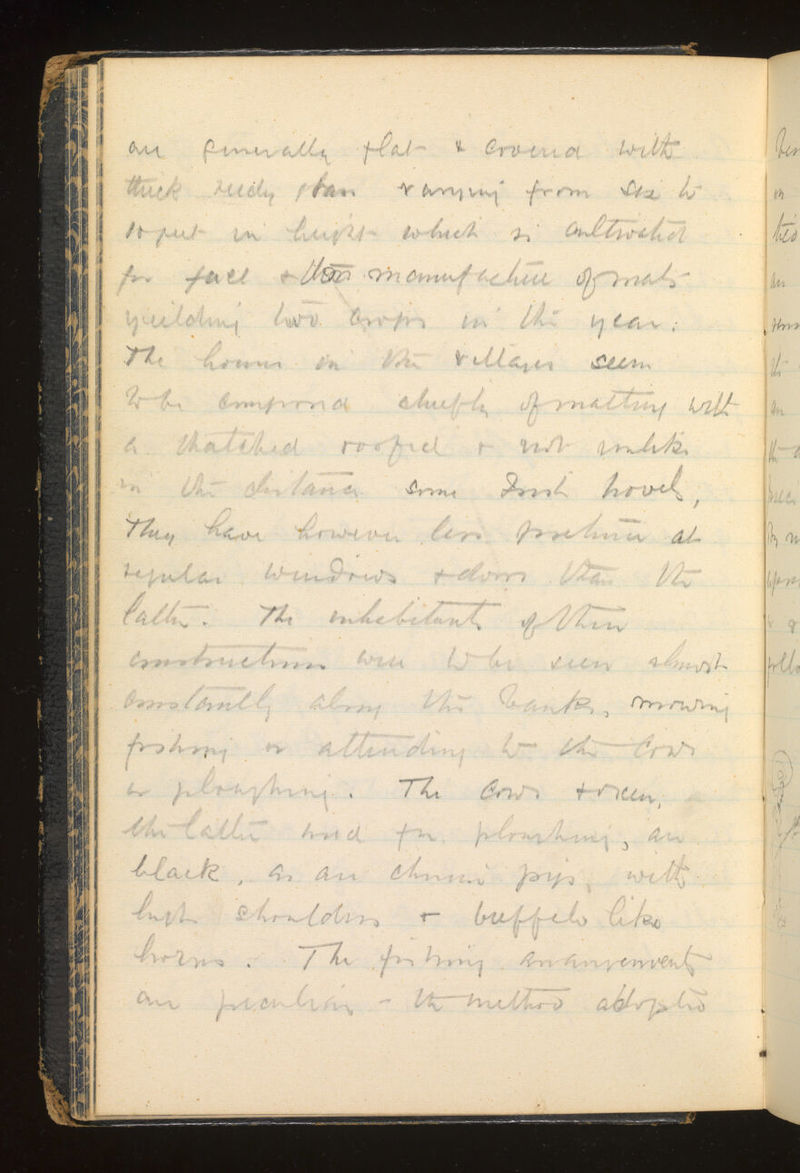 are generally flat & covered with
thick reedy plan varying from six to
10 feet in height which is cultivated
for fuel & the manufacture of mats
yeilding two crops in the year.
The houses in the villages seem
to be composed chiefly of matting with
a thatched roofed & not unlike
in the distance some Irish hovels,
They have however less pretense at
regular windows & doors than the
latter. The inhabitants of these
constructions were to be seen almost
constantly along the banks, mowing
fishing or attending to the cows
or ploughing. The cows & oxen,
the latter used for ploughing, are
black, as are chinese pigs, with
high shoulders & buffelo like
horns. The fishing arrangements
are peculiar - the method adopted